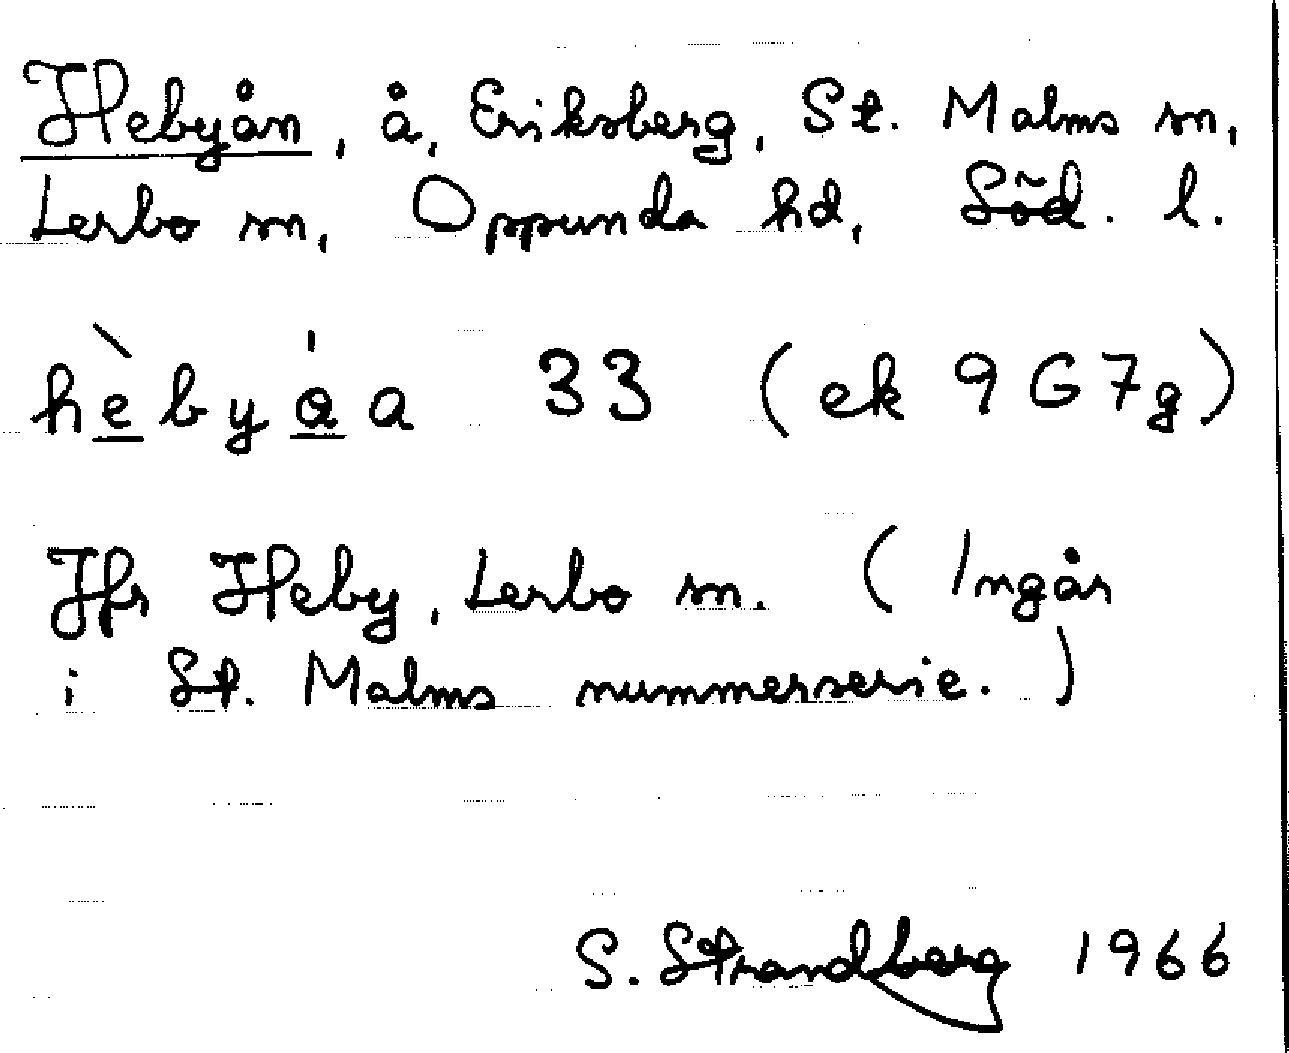 Hebyån, å, Eriksberg, St. Malms sn,
Lerbo sn, Oppunda hd, Söd. l.
hèbyá̱a 33 (ek 9G7g)
Jfr Heby, Lerbo sn. (Ingår
i St. Malms nummerserie.)
S. Strandberg 1966